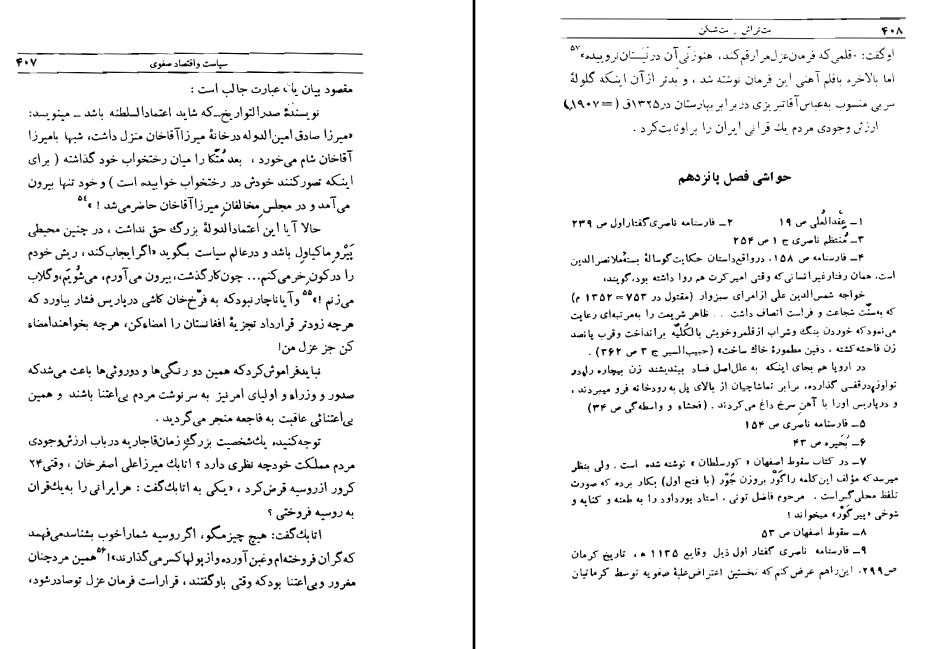 سیاست واقتصاد صفوی ۴۰۷
مقصود بیان یك عبارت جالب است :
نویسندهٔ صدرالتواریخ ـ که شاید اعتمادالسلطنه باشد ـ مینویسد:
«میرزا صادق امین‌الدوله درخانهٔ میرزاآقاخان منزل داشت، شبها بامیرزا
آقاخان شام می‌خورد ، بعد مُتّکا را میان رختخواب خود گذاشته ( برای
اینکه تصورکنند خودش در رختخواب خوابیده است ) و خود تنها بیرون
می‌آمد و در مجلسِ مخالفانِ میرزاآقاخان حاضرمی‌شد ! »۵۴
حالا آیا این اعتمادالدولهٔ بزرگ حق نداشت ، در چنین محیطی
پَیْروِ ماکیاول باشد و درعالم سیاست بگوید «اگر ایجاب‌کند، ریش خودم
را درکون خرمی‌کنم... چون‌کارگذشت، بیرون می‌آورم، می‌شُویَم، وگلاب
می‌زنم !»۵۵ وآیا ناچار نبودکه به فرّخ‌خان کاشی درپاریس فشار بیاورد که
هرچه زودتر قرارداد تجزیهٔ افغانستان را امضاءکن، هرچه بخواهندامضاء
کن جز عزل من!
نبایدفراموش‌کردکه همین دو رنگی‌ها و دوروئی‌ها باعث می‌شدکه
صدور و وزراء و اولیای امرنیز به سرنوشت مردم بی‌اعتنا باشند و همین
بی‌اعتنائی عاقبت به فاجعه منجر می‌گردید .
توجه‌کنید، یك‌شخصیت بزرگِ زمان‌قاجاریه درباب ارزش‌وجودی
مردم مملکت خودچه نظری دارد ؟ اتابك میرزاعلی اصغرخان ، وقتی ۲۴
کرور ازروسیه قرض‌کرد ، «یکی به اتابك‌گفت : هرایرانی را به‌یك‌قران
به روسیه فروختی ؟
اتابك‌گفت: هیچ چیزمگو، اگر روسیه شماراخوب بشناسدمی‌فهمد
که‌گران فروخته‌ام وغبن‌آورده وازپولهاکسرمی‌گذارند»!۵۶ همین مردچنان
مغرور وبی‌اعتنا بودکه وقتی باوگفتند، قراراست فرمان عزل توصادرشود،
بت‌تراش بت‌شکن ۴۰۸
اوگفت: «قلمی‌که فرمان‌عزل‌مرارقم‌کند، هنوزنیِ‌آن درنَیَستان‌نروییده»۵۷
اما بالاخره باقلم آهنی این فرمان نوشته شد ، و بدتر ازآن اینکه گلولهٔ
سربی منسوب به‌عباس‌آقاتبریزی در برابر بهارستان در۱۳۲۵ق (=۱۹۰۷م)
ارزش وجودی مردم یك قرانی ایران را براوثابت‌کرد .
حواشی فصل پانزدهم
۱ـ عِقْدالعُلی ص ۱۹ ۲ـ فارسنامه ناصری‌گفتاراول ص ۲۳۹
۳ـ مُنتظم ناصری ج ۱ ص ۲۵۴
۴ـ فارسنامه ص ۱۵۸، درواقع‌داستان حکایت‌گوسالهٔ بستهٔ‌ملانصرالدین
است، همان رفتارغیرانسانی‌که وقتی امیرکرت هم روا داشته بود، گویند،
خواجه شمس‌الدین علی ازامرای سبزوار (مقتول در ۷۵۳=۱۳۵۲ م)
که به‌سنّت شجاعت و فراست اتصاف داشت... ظاهر شریعت را به‌مرتبه‌ای رعایت
می‌نمودکه خوردن بنگ وشراب ازقلمروخویش بالکلیّه برانداخت وقرب پانصد
زن فاحشه‌کشته ، دفین مطمورهٔ خاك ساخت» (حبیب‌السیر ج ۳ ص ۳۶۲) .
در اروپا هم بجای اینکه به علل‌اصل فساد بیندیشند زن بیچاره را، در
تولوز، درقفسی گذارده، برابر تماشاچیان از بالای پل به رودخانه فرو میبردند ،
و درپاریس اورا با آهنِ سرخ داغ می‌کردند . (فحشاء و واسطه‌گی ص ۳۴)
۵ـ فارسنامه ناصری ص ۱۵۴
۶ـ بُحَیره ص ۴۳
۷ـ در کتاب سقوط اصفهان «کورسلطان» نوشته شده است . ولی بنظر
میرسدکه مؤلف این‌کلمه راگَوْر بروزن جَوْر (با فتح اول) بکار برده که صورت
تلفظ محلی‌گبراست . مرحوم فاضل تونی ، استاد پورداود را به طعنه و کنایه و
شوخی «پیرگَوْر» میخواند !
۸ـ سقوط اصفهان ص ۵۳
۹ـ فارسنامه ناصری گفتار اول ذیل وقایع ۱۱۳۵ ه‍ ، تاریخ کرمان
ص۲۹۹. این‌راهم عرض‌کنم‌که نخستین اعتراض‌علیهٔ صفویه توسط کرمانیان